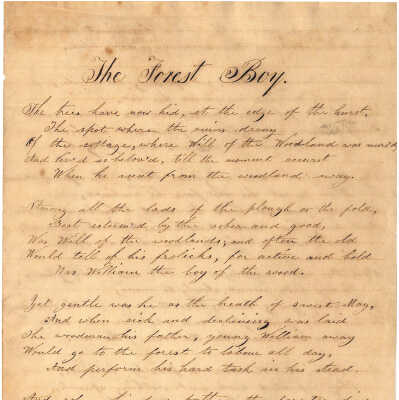 The Forest Boy.
The trees have now hid, at the edge of the hurst,
The spot where the ruins decay
Of the cottage, where Will of the Woodland was nurs'd
And liv'd so belov'd, till the moment accurst
When he went from the woodland away.
Among all the lads of the plough or the fold,
Best esteem'd by the sober and good,
Was Will of the woodlands; and often the old
Would tell of his frolicks, for active and bold
Was William the boy of the wood.
Yet gentle was he as the breath of sweet May,
And when sick and declining was laid
The woodman his father, young William away
Would go to the forest to labour all day,
And perform his hard task in his stead.